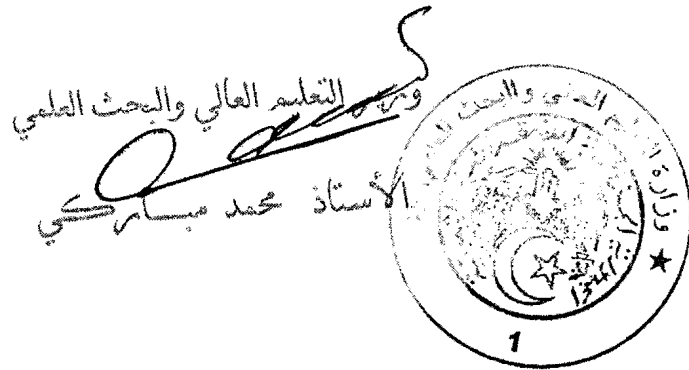 وزير التعليم العالي والبحث العلمي
الأستاذ محمد مبـــاركي
وزارة التعليم العالي والبحث العلمي
★
1